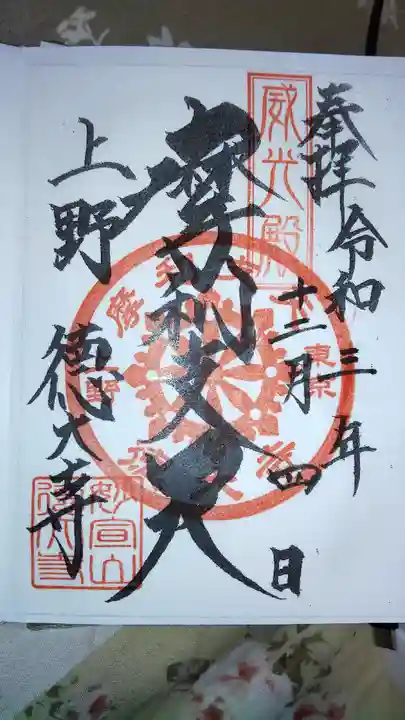 奉拝
令和三年
十二月四日
威光殿
摩利支天
上野
徳大寺
東京